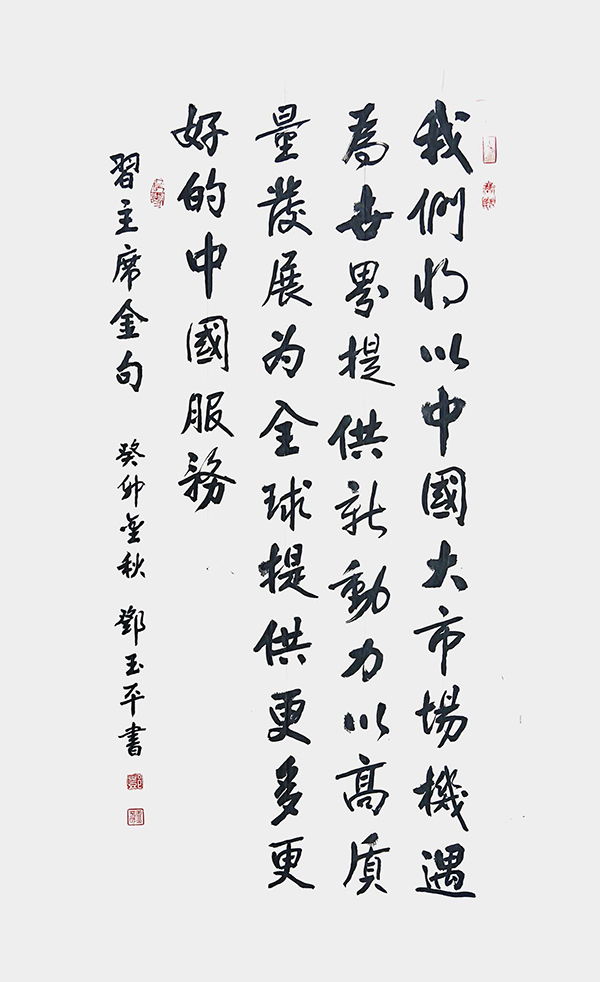 我們將以中國大市場機遇
為世界提供新動力以高质
量發展为全球提供更多更
好的中國服務
習主席金句 癸卯金秋 鄧玉平書